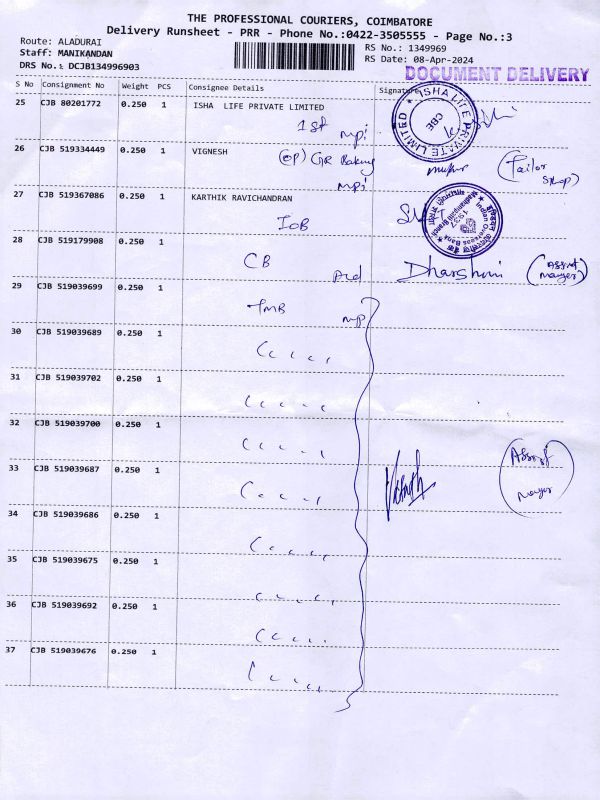 THE PROFESSIONAL COURIERS, COIMBATORE
Delivery Runsheet - PRR - Phone No.:0422-3505555 - Page No.:3
Route: ALADURAI
Staff: MANIKANDAN
DRS No.: DCJB134996903
RS No.: 1349969
RS Date: 08-Apr-2024
DOCUMENT DELIVERY
S No Consignment No Weight PCS Consignee Details Signature
25 CJB 80201772 0.250 1 ISHA LIFE PRIVATE LIMITED
1st mpi
ISHA LIFE PRIVATE LIMITED
CBE
26 CJB 519334449 0.250 1 VIGNESH
(OP) GR Baking (Tailor Shop)
mpi
27 CJB 519367086 0.250 1 KARTHIK RAVICHANDRAN
IOB
Indian Overseas Bank
1937
28 CJB 519179908 0.250 1
CB Dharshini (Assist manager)
29 CJB 519039699 0.250 1
TMB mp
30 CJB 519039689 0.250 1
31 CJB 519039702 0.250 1
32 CJB 519039700 0.250 1
33 CJB 519039687 0.250 1
34 CJB 519039686 0.250 1
35 CJB 519039675 0.250 1
36 CJB 519039692 0.250 1
37 CJB 519039676 0.250 1